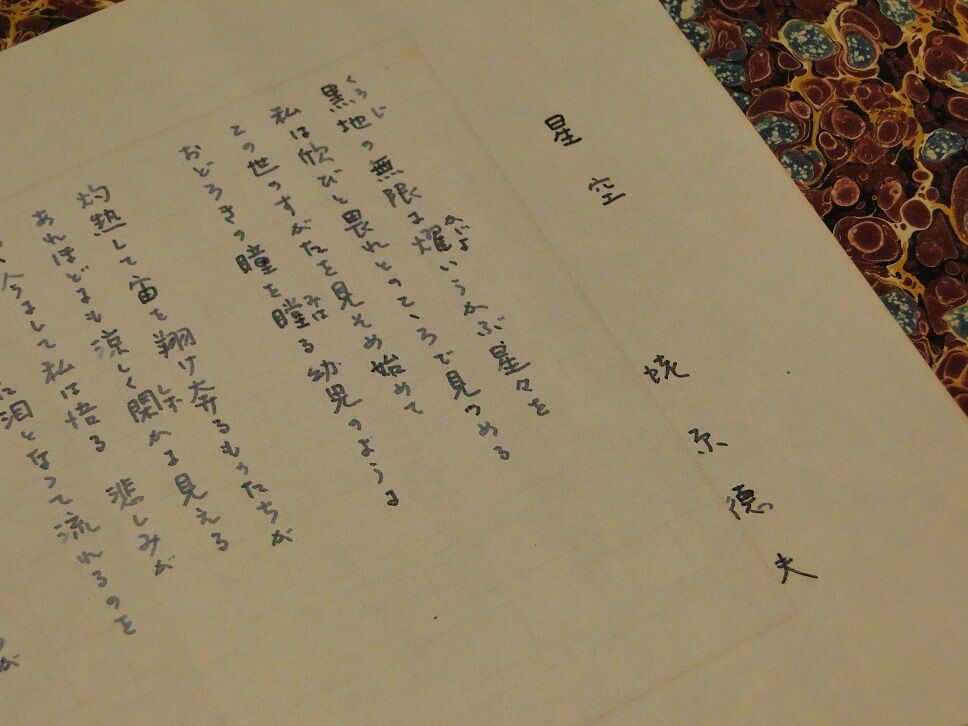 星空 蛯原徳夫
くろじ かゞよ
黒地の無限に耀いうかぶ星々を
私は欣びと畏れとのこゝろで見つめる
この世のすがたを見そめ始めて
みは
おどろきの瞳を瞠る幼児のように
灼熱して宙を翔け奔るものたちが
しづ
あれほどにも涼しく閑かに見える
今にして私は悟る 悲しみが
た泪となって流れるのを
が